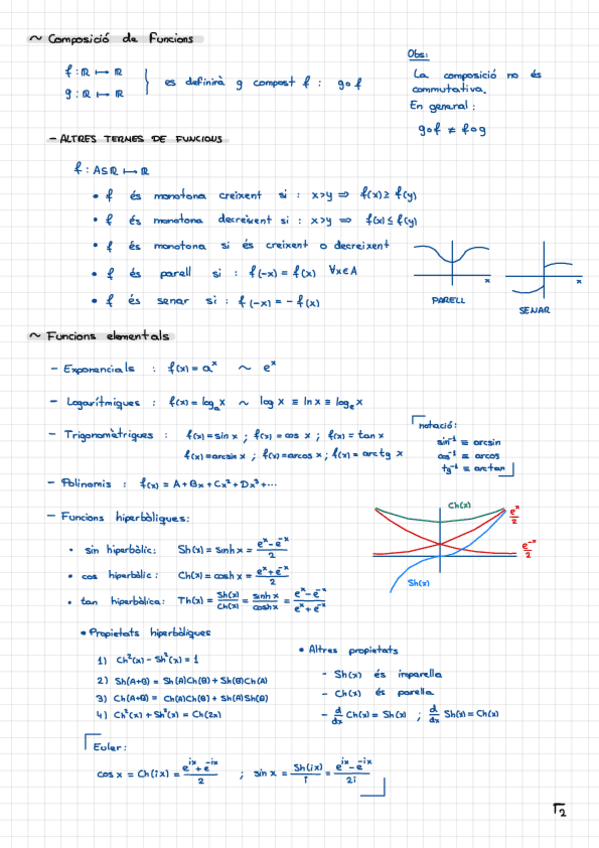 ~ Composició de Funcions
f : ℝ ↦ ℝ
g : ℝ ↦ ℝ
es definirà g compost f : g∘f
Obs:
La composició no és
commutativa.
En general:
g∘f ≠ f∘g
- ALTRES TERMES DE FUNCIONS
f : A⊆ℝ ↦ ℝ
• f és monòtona creixent si : x>y ⇒ f(x) ≥ f(y)
• f és monòtona decreixent si : x>y ⇒ f(x) ≤ f(y)
• f és monòtona si és creixent o decreixent
• f és parell si : f(-x) = f(x) ∀x∈A
• f és senar si : f(-x) = - f(x)
x
PARELL
x
SENAR
~ Funcions elementals
- Exponencials : f(x) = aˣ ~ eˣ
- Logarítmiques : f(x) = logₐx ~ log x ≡ ln x ≡ logₑx
- Trigonomètriques : f(x) = sin x ; f(x) = cos x ; f(x) = tan x
f(x) = arcsin x ; f(x) = arcos x ; f(x) = arctg x
notació:
sin⁻¹ ≡ arcsin
cos⁻¹ ≡ arcos
tg⁻¹ ≡ arctan
- Polinomis : f(x) = A + Bx + Cx² + Dx³ + ...
- Funcions hiperbòliques:
• sin hiperbòlic: Sh(x) = sinh x = (eˣ - e⁻ˣ)/2
• cos hiperbòlic: Ch(x) = cosh x = (eˣ + e⁻ˣ)/2
• tan hiperbòlica: Th(x) = Sh(x)/Ch(x) = sinh x/cosh x = (eˣ - e⁻ˣ)/(eˣ + e⁻ˣ)
Ch(x)
eˣ/2
e⁻ˣ/2
Sh(x)
• Propietats hiperbòliques
1) Ch²(x) - Sh²(x) = 1
2) Sh(A+B) = Sh(A)Ch(B) + Sh(B)Ch(A)
3) Ch(A+B) = Ch(A)Ch(B) + Sh(A)Sh(B)
4) Ch²(x) + Sh²(x) = Ch(2x)
• Altres propietats
- Sh(x) és imparella
- Ch(x) és parella
- d/dx Ch(x) = Sh(x) ; d/dx Sh(x) = Ch(x)
Euler:
cos x = Ch(ix) = (eⁱˣ + e⁻ⁱˣ)/2 ; sin x = Sh(ix)/i = (eⁱˣ - e⁻ⁱˣ)/2i